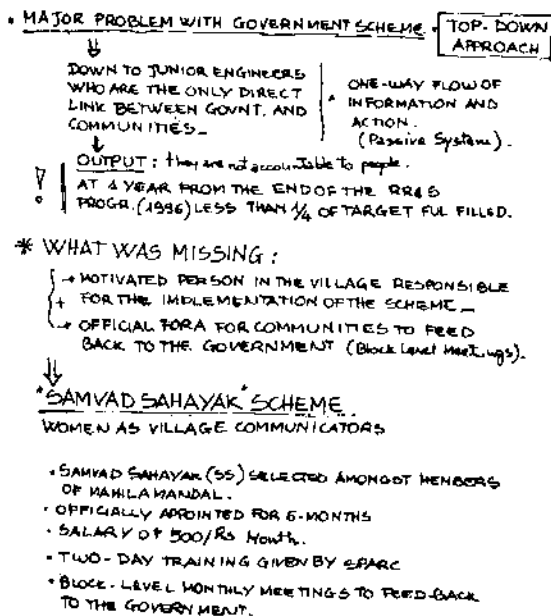 • MAJOR PROBLEM WITH GOVERNMENT SCHEME • TOP-DOWN APPROACH
DOWN TO JUNIOR ENGINEERS
WHO ARE THE ONLY DIRECT
LINK BETWEEN GOVNT. AND
COMMUNITIES_
• ONE-WAY FLOW OF
INFORMATION AND
ACTION.
(Passive System).
OUTPUT: they are not accountable to people.
AT 1 YEAR FROM THE END OF THE RR&S
PROGR. (1996) LESS THAN 1/4 OF TARGET FUL FILLED.
* WHAT WAS MISSING:
→ MOTIVATED PERSON IN THE VILLAGE RESPONSIBLE
+ FOR THE IMPLEMENTATION OF THE SCHEME_
→ OFFICIAL FORA FOR COMMUNITIES TO FEED
BACK TO THE GOVERNMENT (Block Level Meetings).
"SAMVAD SAHAYAK" SCHEME.
WOMEN AS VILLAGE COMMUNICATORS
• SAMVAD SAHAYAK (SS) SELECTED AMONGST MEMBERS
OF MAHILA MANDAL.
• OFFICIALLY APPOINTED FOR 6-MONTHS
• SALARY OF 500/Rs Month.
• TWO-DAY TRAINING GIVEN BY SPARC
• BLOCK-LEVEL MONTHLY MEETINGS TO FEED-BACK
TO THE GOVERNMENT.